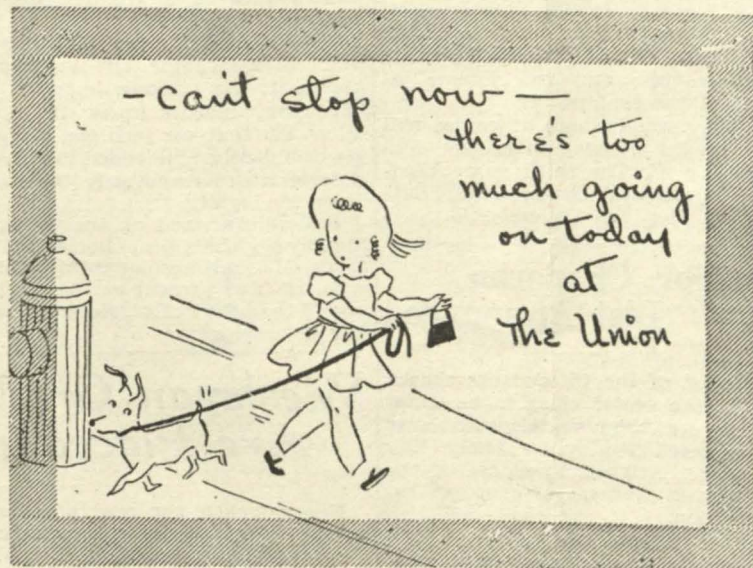 - can't stop now -
there's too
much going
on today
at
The Union